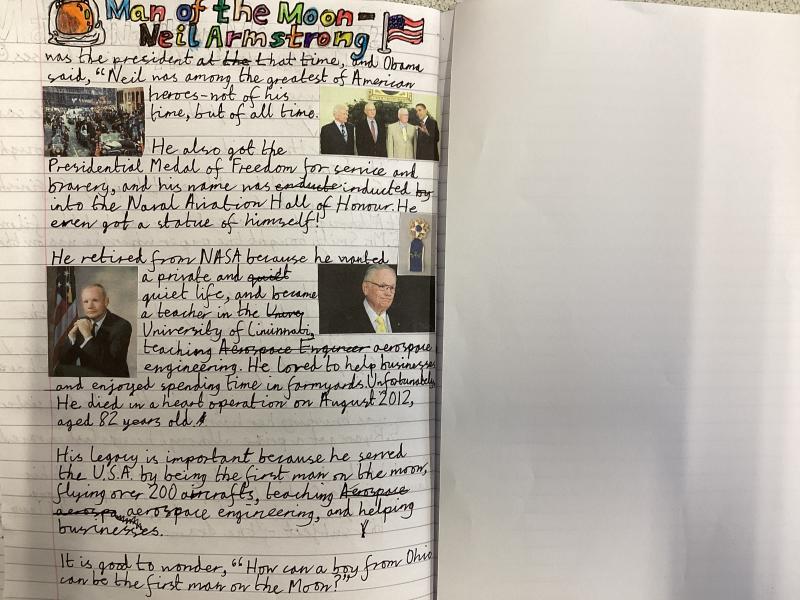 Man of the Moon-
Neil Armstrong
was the president at the that time, and Obama
said, "Neil was among the greatest of American
heroes-not of his
time, but of all time.
He also got the
Presidential Medal of Freedom for service and
bravery, and his name was enducte inducted by
into the Naval Aviation Hall of Honour. He
even got a statue of himself!
He retired from NASA because he wanted
a private and quiet
quiet life, and became
a teacher in the Univ
University of Cininnati,
teaching Aerospace Engineer aerospace
engineering. He loved to help businesses
and enjoyed spending time in farmyards. Unfortunately,
He died in a heart operation on August 2012,
aged 82 years old.
His legacy is important because he served
the U.S.A. by being the first man on the moon,
flying over 200 aircrafts, teaching Aerospace
aerospa aerospace engineering, and helping
businesses.
It is good to wonder, "How can a boy from Ohio
can be the first man on the Moon?"